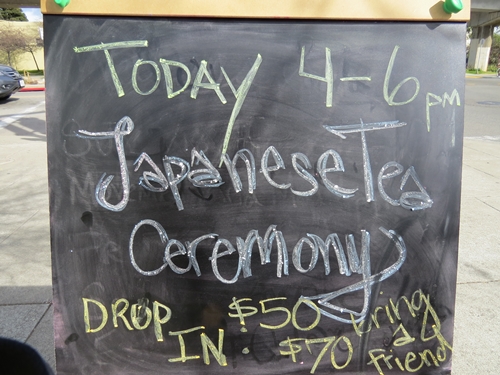 TODAY 4-6 pm
Japanese Tea
Ceremony
DROP IN. $50
$70 bring a friend